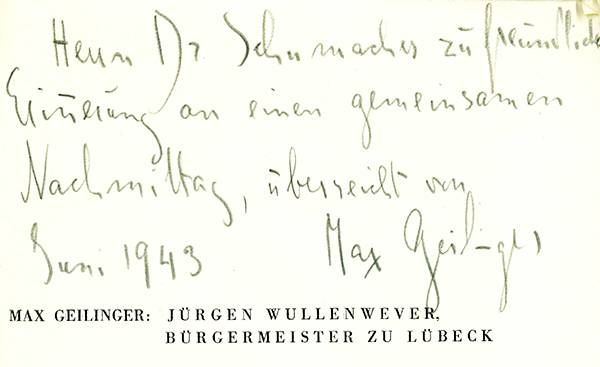 Herrn Dr. Schumacher zu freundlicher
Erinnerung an einen gemeinsamen
Nachmittag, überreicht von
Juni 1943 Max Geilinger
MAX GEILINGER: JÜRGEN WULLENWEVER,
BÜRGERMEISTER ZU LÜBECK